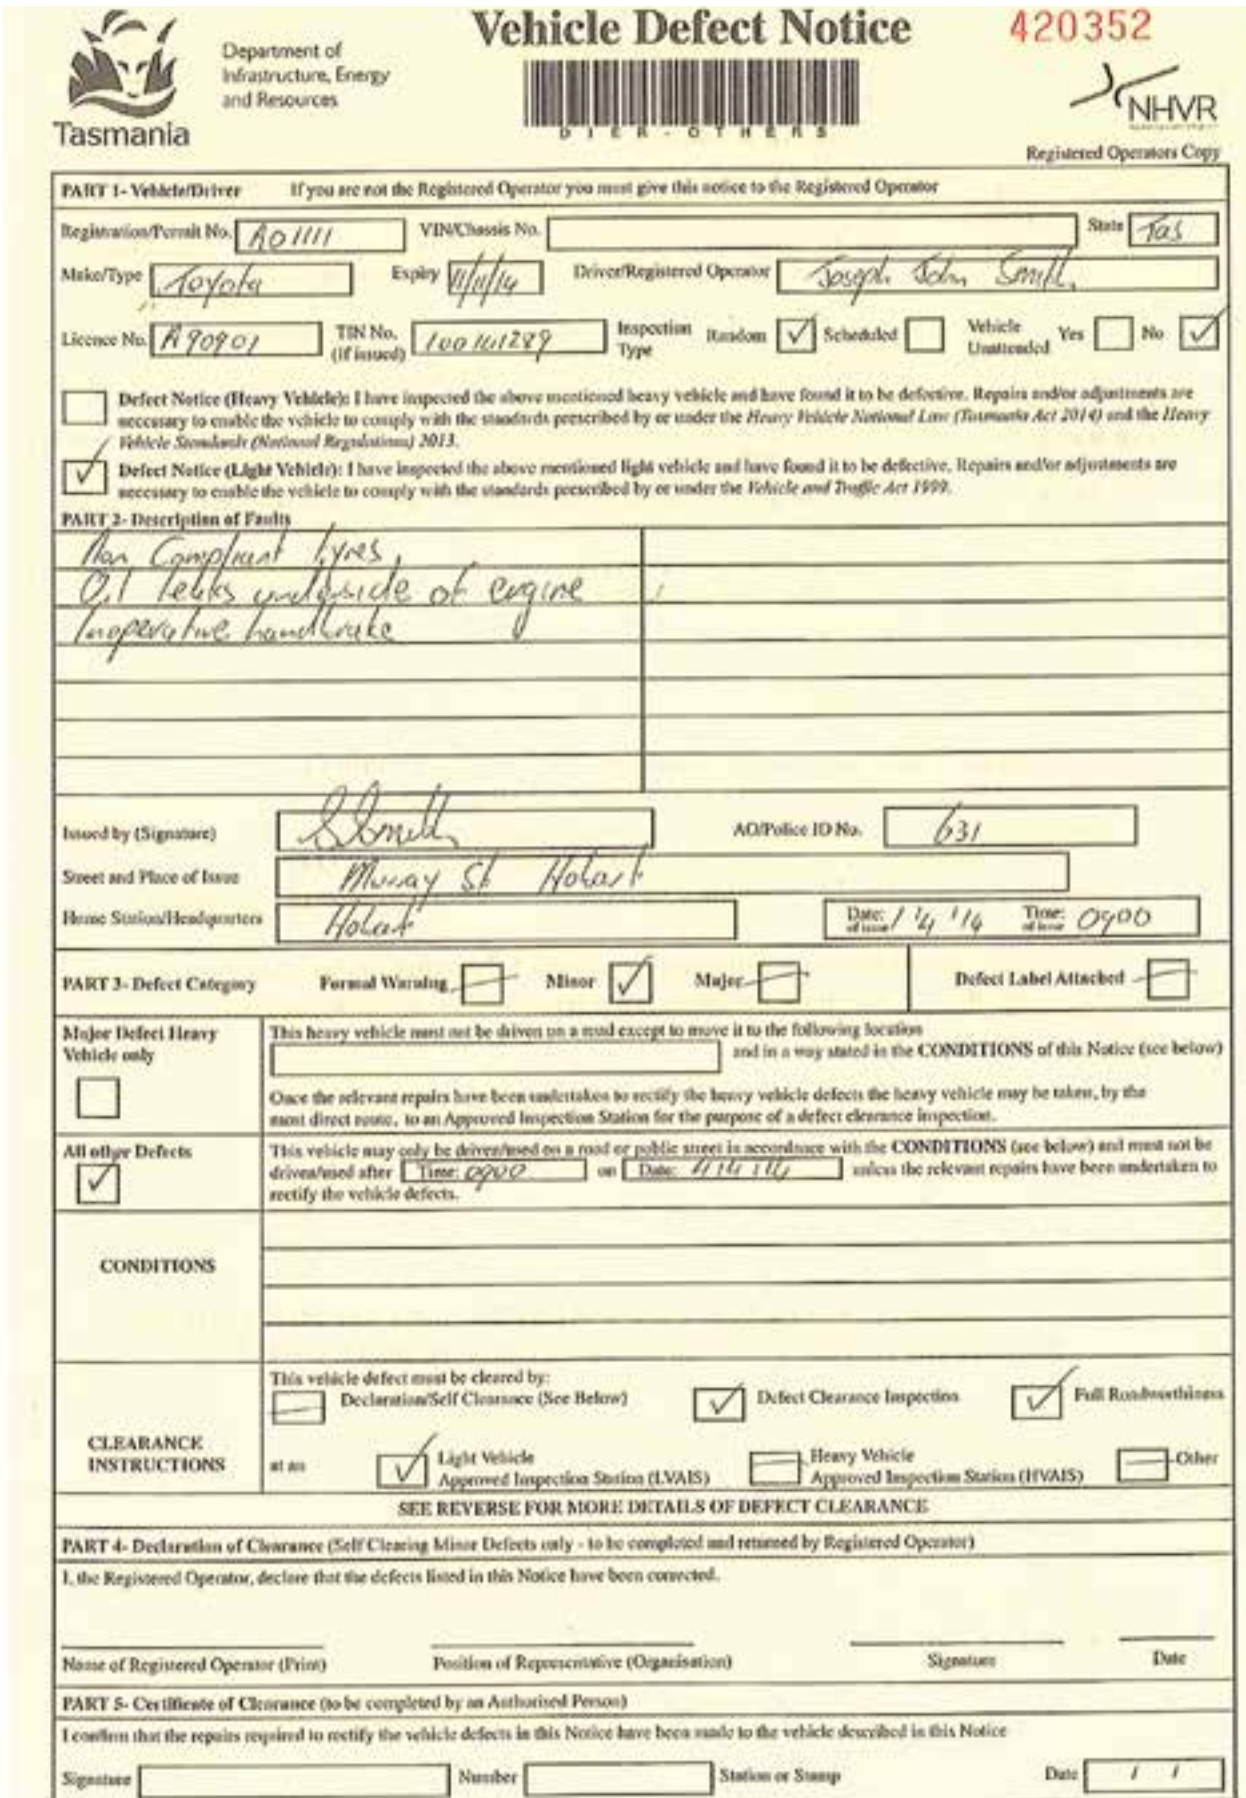 Vehicle Defect Notice
420352
Department of
Infrastructure, Energy
and Resources
Tasmania
DIER-OTHERS
NHVR
Registered Operators Copy
PART 1- Vehicle/Driver If you are not the Registered Operator you must give this notice to the Registered Operator
Registration/Permit No. A01111 VIN/Chassis No. State Tas
Make/Type Toyota Expiry 11/11/14 Driver/Registered Operator Joseph John Smith
Licence No. A90901 TIN No. (if issued) Inspection Type Random Scheduled Vehicle Unattended Yes No
Defect Notice (Heavy Vehicle): I have inspected the above mentioned heavy vehicle and have found it to be defective. Repairs and/or adjustments are
necessary to enable the vehicle to comply with the standards prescribed by or under the Heavy Vehicle National Law (Tasmania Act 2014) and the Heavy
Vehicle Standards (National Regulations) 2013.
Defect Notice (Light Vehicle): I have inspected the above mentioned light vehicle and have found it to be defective. Repairs and/or adjustments are
necessary to enable the vehicle to comply with the standards prescribed by or under the Vehicle and Traffic Act 1999.
PART 2- Description of Faults
Non Compliant tyres,
Oil leaks underside of engine
Inoperative handbrake
Issued by (Signature) SSmith AO/Police ID No. 631
Street and Place of Issue Murray St Hobart
Home Station/Headquarters Hobart Date: of issue 1/4/14 Time: of issue 0900
PART 3- Defect Category Formal Warning Minor Major Defect Label Attached
Major Defect Heavy
Vehicle only
This heavy vehicle must not be driven on a road except to move it to the following location
and in a way stated in the CONDITIONS of this Notice (see below)
Once the relevant repairs have been undertaken to rectify the heavy vehicle defects the heavy vehicle may be taken, by the
most direct route, to an Approved Inspection Station for the purpose of a defect clearance inspection.
All other Defects
This vehicle may only be driven/used on a road or public street in accordance with the CONDITIONS (see below) and must not be
driven/used after Time: 0900 on Date: 4/4/14 unless the relevant repairs have been undertaken to
rectify the vehicle defects.
CONDITIONS
CLEARANCE
INSTRUCTIONS
This vehicle defect must be cleared by:
Declaration/Self Clearance (See Below) Defect Clearance Inspection Full Roadworthiness
at an Light Vehicle Approved Inspection Station (LVAIS) Heavy Vehicle Approved Inspection Station (HVAIS) Other
SEE REVERSE FOR MORE DETAILS OF DEFECT CLEARANCE
PART 4- Declaration of Clearance (Self Clearing Minor Defects only - to be completed and returned by Registered Operator)
I, the Registered Operator, declare that the defects listed in this Notice have been corrected.
Name of Registered Operator (Print) Position of Representative (Organisation) Signature Date
PART 5- Certificate of Clearance (to be completed by an Authorised Person)
I confirm that the repairs required to rectify the vehicle defects in this Notice have been made to the vehicle described in this Notice
Signature Number Station or Stamp Date / /